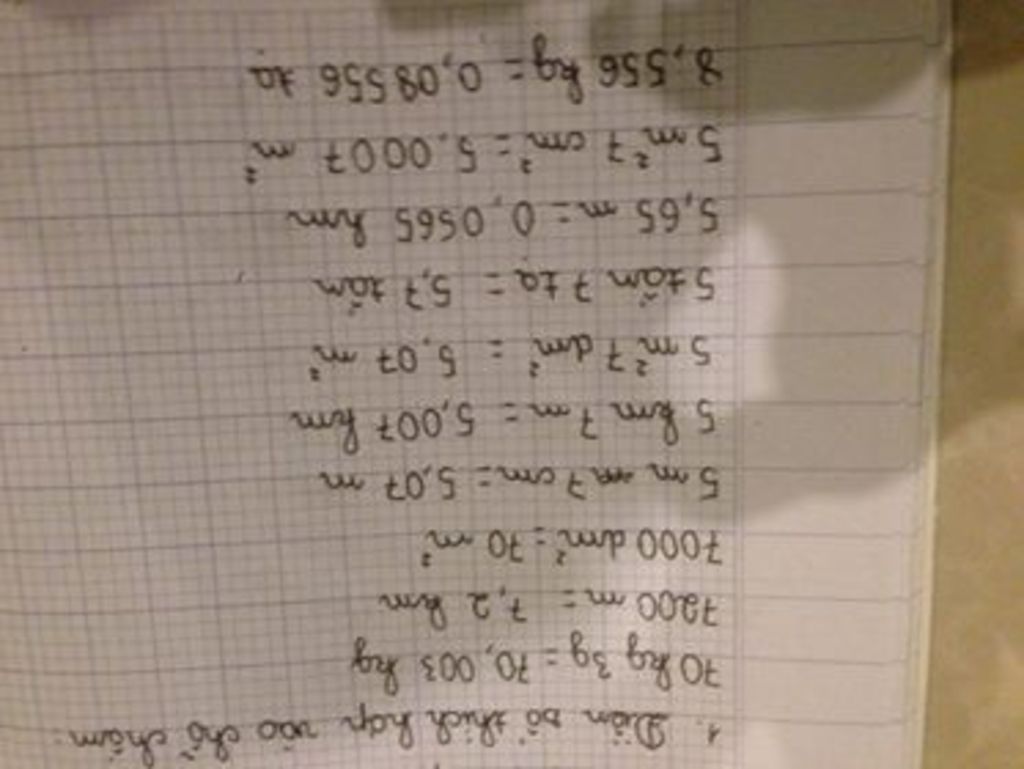 1. Điền số thích hợp vào chỗ chấm:
70 kg 3g = 70,003 kg
7200 m = 7,2 km
7000 dm² = 70 m²
5 m 7 cm = 5,07 m
5 km 7 m = 5,007 km
5 m² 7 dm² = 5,07 m²
5 tấn 7 tạ = 5,7 tấn
5,65 m = 0,0565 hm
5 m² 7 cm² = 5,0007 m²
8,556 kg = 0,08556 tạ